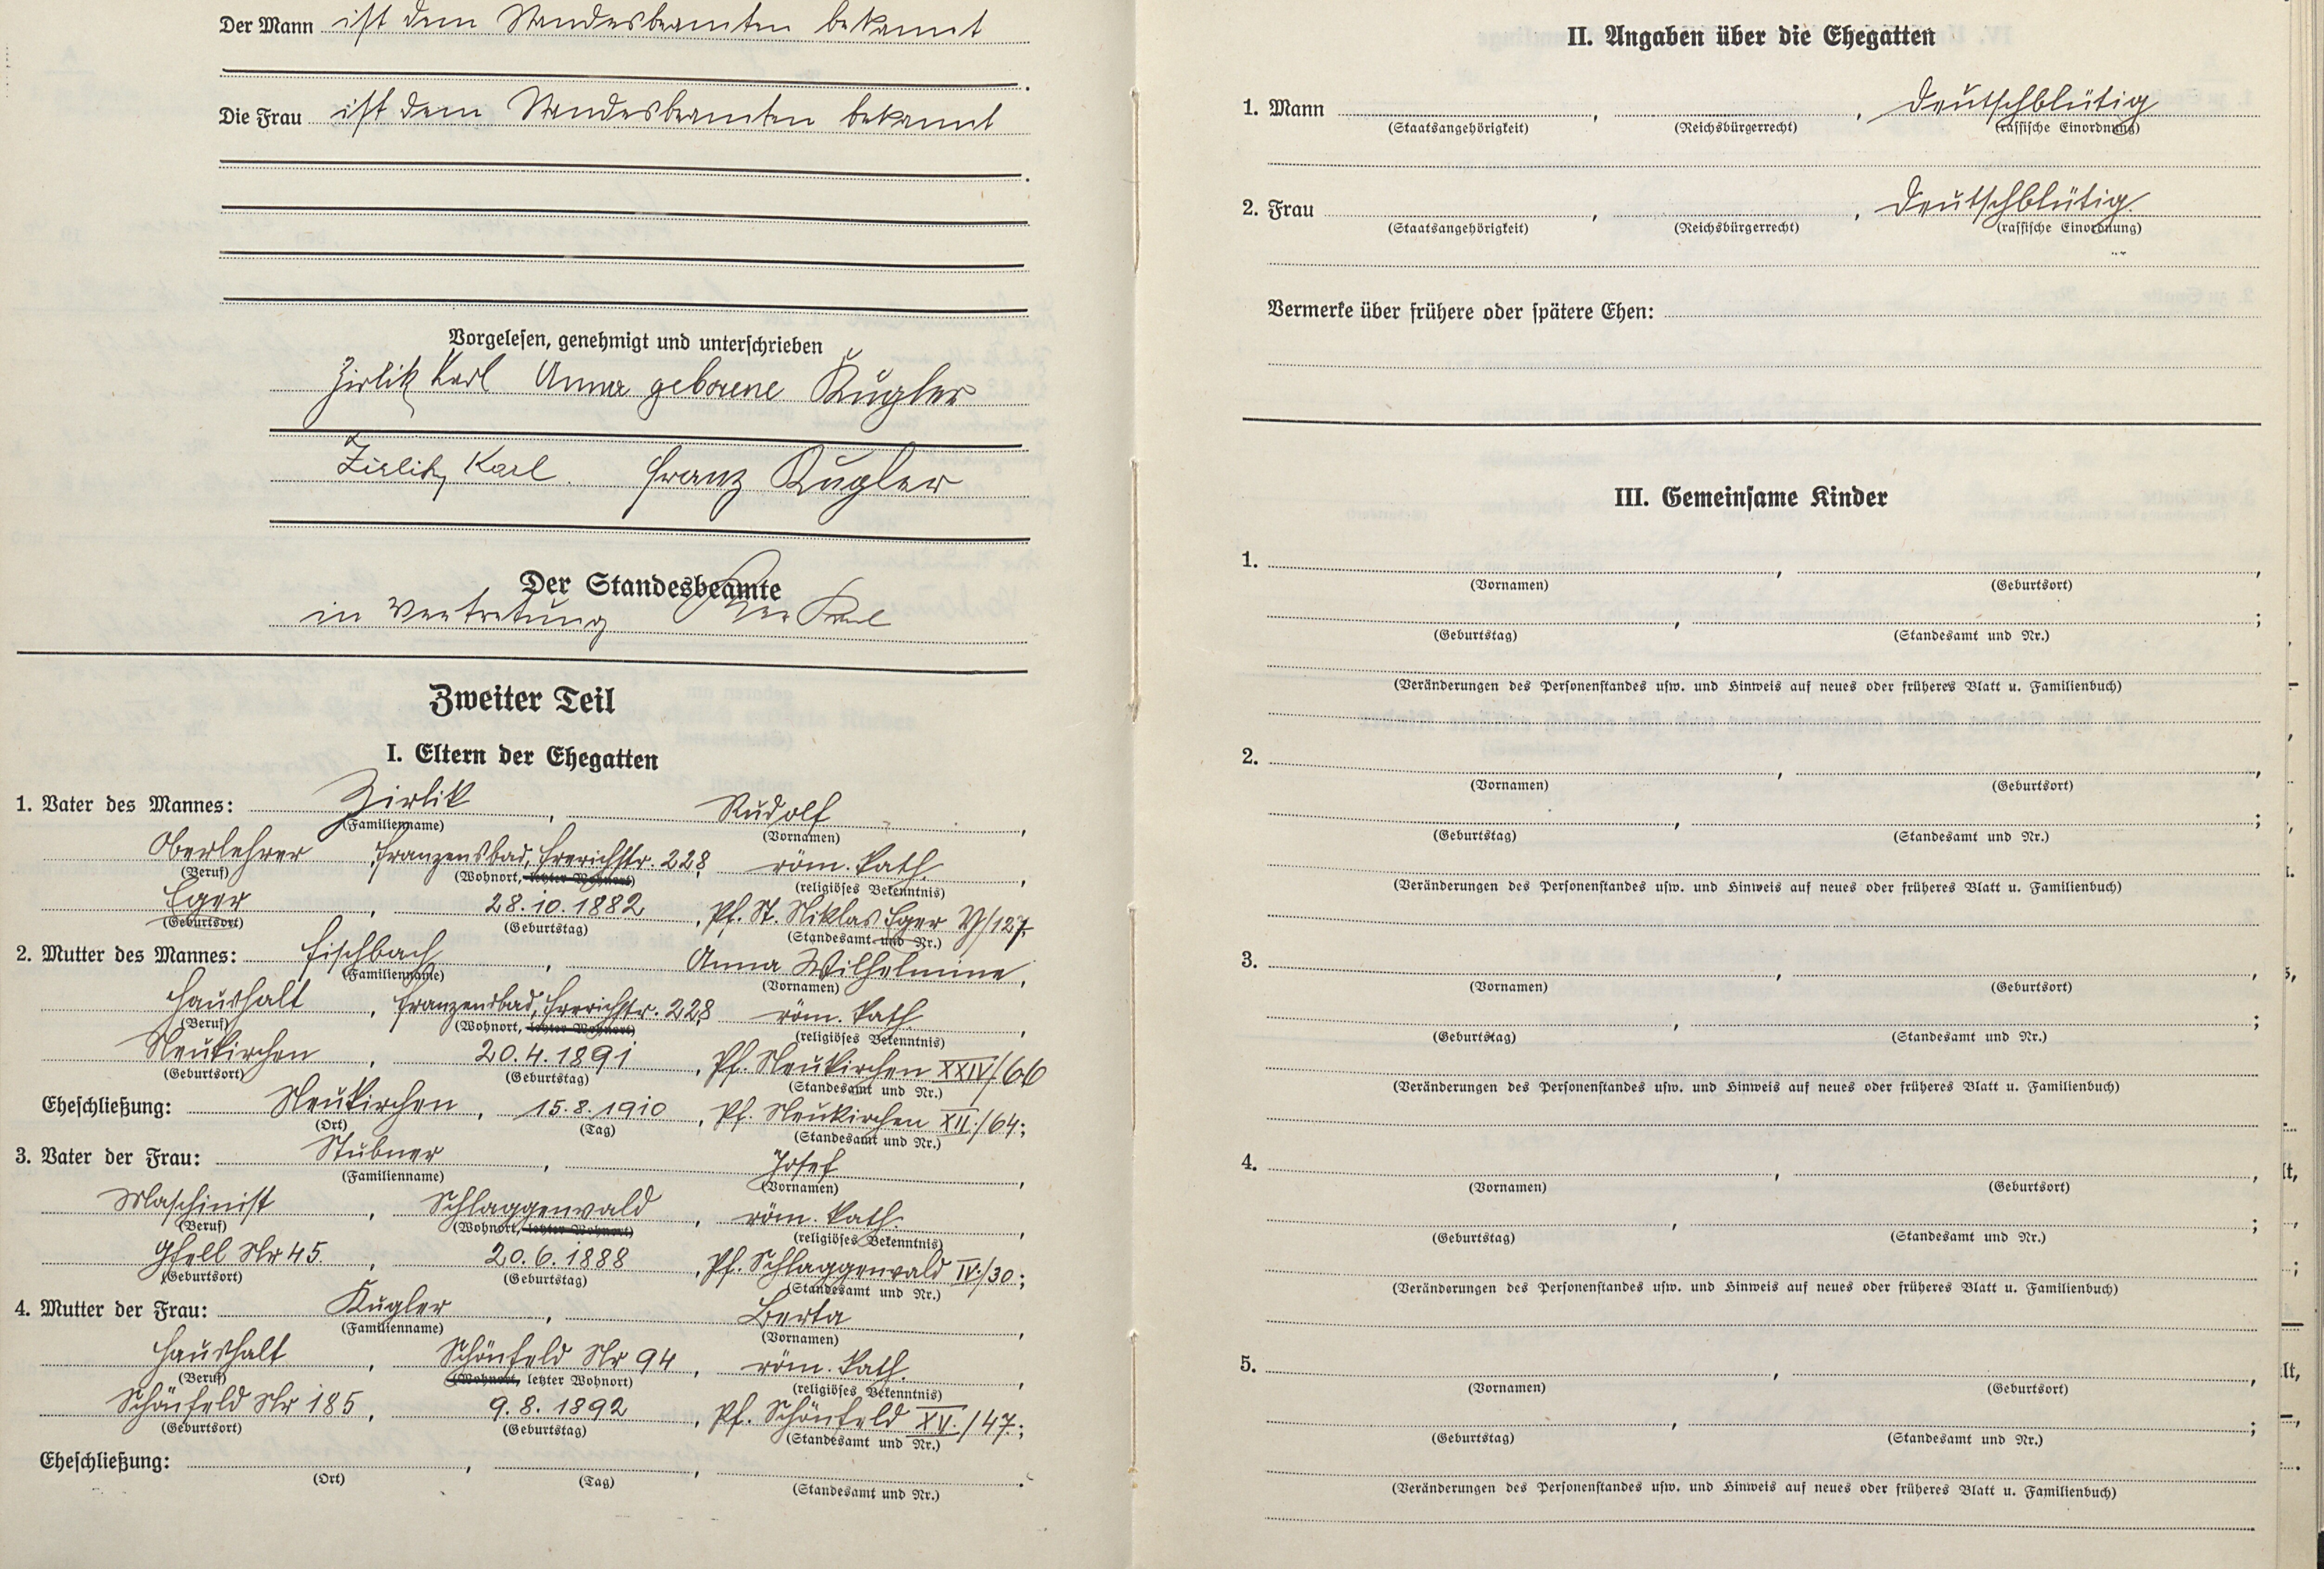 Der Mann ist dem Standesbeamten bekannt
Die Frau ist dem Standesbeamten bekannt
Vorgelesen, genehmigt und unterschrieben
Zirlik Karl Anna geborene Kugler
Zirlik Karl. Franz Kugler
Der Standesbeamte
in Vertretung
Zweiter Teil
I. Eltern der Ehegatten
1. Vater des Mannes: Zirlik, Rudolf,
(Familienname) (Vornamen)
Oberlehrer Franzensbad, 228 röm. kath.,
(Beruf) (Wohnort, letzter Wohnort) (religiöses Bekenntnis)
Eger, 28.10.1882, Pf. St. Niklas Eger /127
(Geburtsort) (Geburtstag) (Standesamt und Nr.)
2. Mutter des Mannes: Fischbach, Anna Wilhelmine,
(Familienname) (Vornamen)
Haushalt, Franzensbad, 228 röm. kath.,
(Beruf) (Wohnort, letzter Wohnort) (religiöses Bekenntnis)
Neukirchen, 20.4.1891, Pf. Neukirchen XXIV/66
(Geburtsort) (Geburtstag) (Standesamt und Nr.)
Eheschließung: Neukirchen, 15.8.1910, Pf. Neukirchen XII/64;
(Ort) (Tag) (Standesamt und Nr.)
3. Vater der Frau: Stübner, Josef,
(Familienname) (Vornamen)
Maschinist, Schlaggenwald, röm. kath.,
(Beruf) (Wohnort, letzter Wohnort) (religiöses Bekenntnis)
Gfell Nr 45, 20.6.1888, Pf. Schlaggenwald IV/30;
(Geburtsort) (Geburtstag) (Standesamt und Nr.)
4. Mutter der Frau: Kugler, Berta,
(Familienname) (Vornamen)
Haushalt, Schönfeld Nr 94, röm. kath.,
(Beruf) (Wohnort, letzter Wohnort) (religiöses Bekenntnis)
Schönfeld Nr 185, 9.8.1892, Pf. Schönfeld XV./47;
(Geburtsort) (Geburtstag) (Standesamt und Nr.)
Eheschließung: , , .
(Ort) (Tag) (Standesamt und Nr.)
II. Angaben über die Ehegatten
1. Mann , , deutschblütig
(Staatsangehörigkeit) (Reichsbürgerrecht) (rassische Einordnung)
2. Frau , , deutschblütig.
(Staatsangehörigkeit) (Reichsbürgerrecht) (rassische Einordnung)
Vermerke über frühere oder spätere Ehen:
III. Gemeinsame Kinder
1. , ,
(Vornamen) (Geburtsort)
, ;
(Geburtstag) (Standesamt und Nr.)
(Veränderungen des Personenstandes usw. und Hinweis auf neues oder früheres Blatt u. Familienbuch)
2. , ,
(Vornamen) (Geburtsort)
, ;
(Geburtstag) (Standesamt und Nr.)
(Veränderungen des Personenstandes usw. und Hinweis auf neues oder früheres Blatt u. Familienbuch)
3. , ,
(Vornamen) (Geburtsort)
, ;
(Geburtstag) (Standesamt und Nr.)
(Veränderungen des Personenstandes usw. und Hinweis auf neues oder früheres Blatt u. Familienbuch)
4. , ,
(Vornamen) (Geburtsort)
, ;
(Geburtstag) (Standesamt und Nr.)
(Veränderungen des Personenstandes usw. und Hinweis auf neues oder früheres Blatt u. Familienbuch)
5. , ,
(Vornamen) (Geburtsort)
, ;
(Geburtstag) (Standesamt und Nr.)
(Veränderungen des Personenstandes usw. und Hinweis auf neues oder früheres Blatt u. Familienbuch)